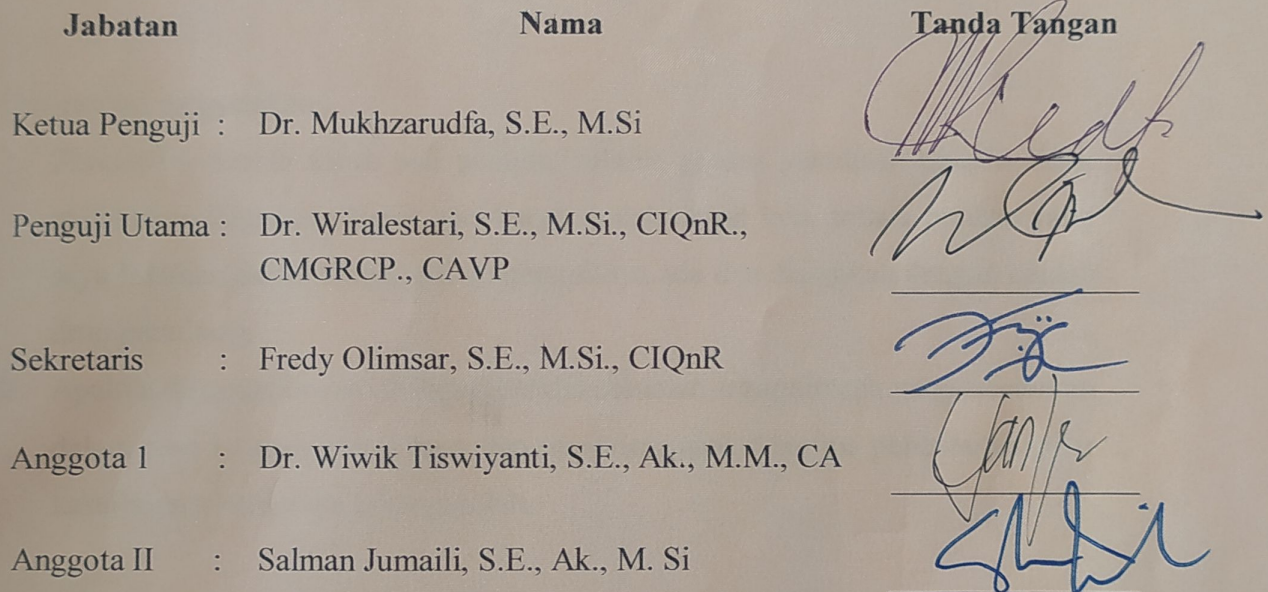 Jabatan Nama Tanda Tangan
Ketua Penguji : Dr. Mukhzarudfa, S.E., M.Si
Penguji Utama : Dr. Wiralestari, S.E., M.Si., CIQnR.,
CMGRCP., CAVP
Sekretaris : Fredy Olimsar, S.E., M.Si., CIQnR
Anggota 1 : Dr. Wiwik Tiswiyanti, S.E., Ak., M.M., CA
Anggota II : Salman Jumaili, S.E., Ak., M. Si